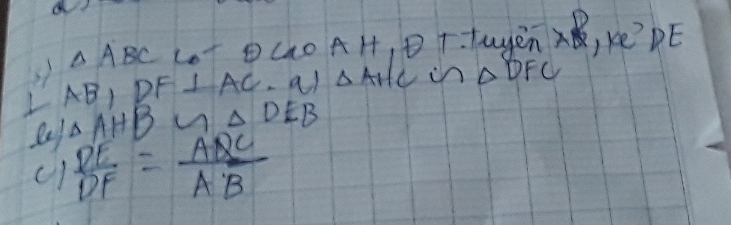 a)
△ ABC có Đ Cao AH, Đ T. Tuyến, kẻ DE
⊥ AB, DF ⊥ AC. a) △ AHC ∽ △ DFC
b) △ AHB ∽ △ DEB
c) DE/DF = AC/AB